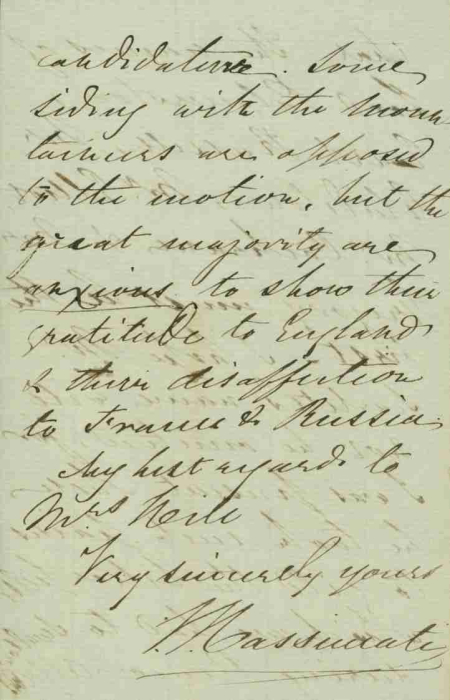 candidature. Some
siding with the moun
taineers are opposed
to the motion, but the
great majority are
anxious to show their
gratitude to England
& their disaffection
to France & Russia.
My best regards to
Mrs
Very sincerely yours